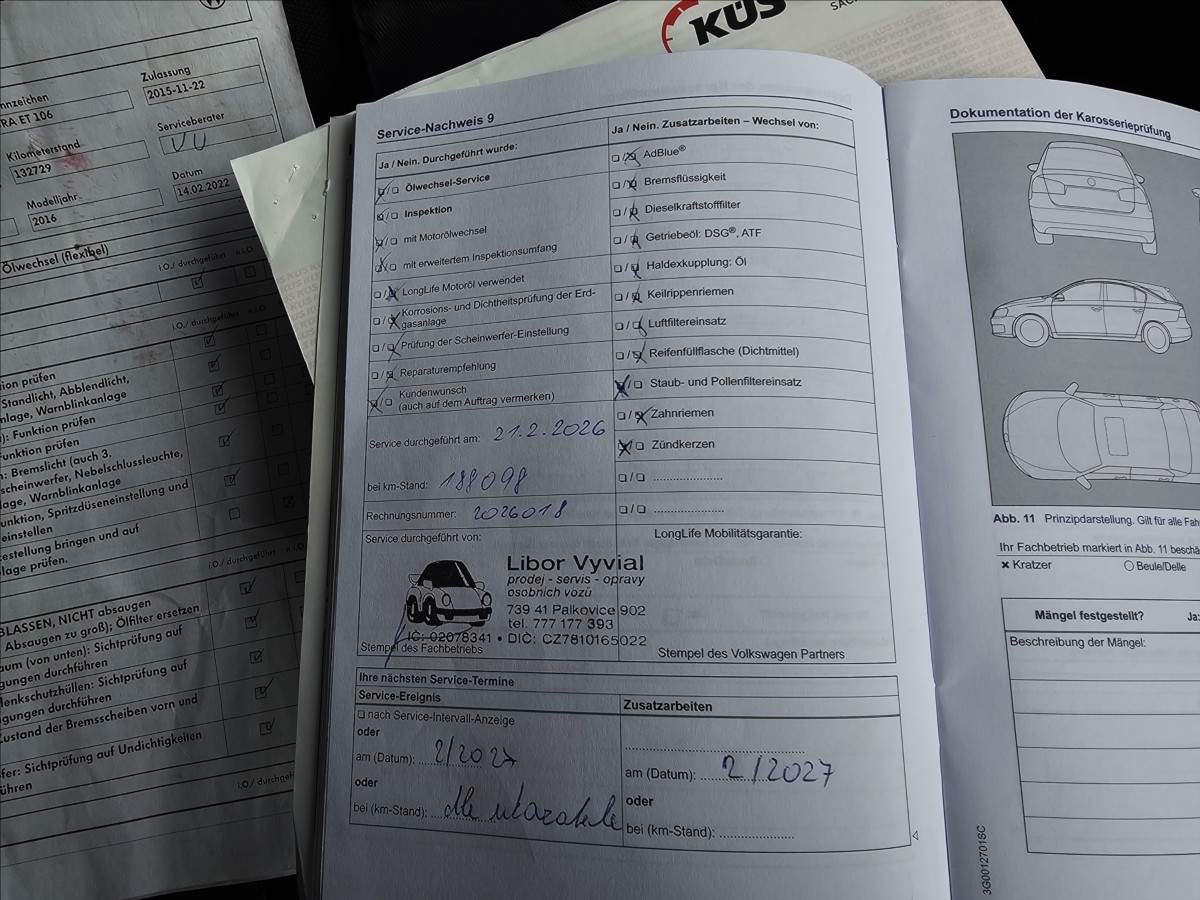 nnzeichen
RA ET 106
Zulassung
2015-11-22
Kilometerstand
132729
Serviceberater
VU
Modelljahr
2016
Datum
14.02.2022
Ölwechsel (flexibel)
I.O./ durchgeführt n.i.O.
I.O./ durchgeführt n.i.O.
ion prüfen
Standlicht, Abblendlicht,
nlage, Warnblinkanlage
): Funktion prüfen
Funktion prüfen
n: Bremslicht (auch 3.
scheinwerfer, Nebelschlussleuchte,
lage, Warnblinkanlage
unktion, Spritzdüseneinstellung und
einstellen
estellung bringen und auf
lage prüfen.
I.O./ durchgeführt n.i.O.
BLASSEN, NICHT absaugen
Absaugen zu groß); Ölfilter ersetzen
aum (von unten): Sichtprüfung auf
gungen durchführen
lenkschutzhüllen: Sichtprüfung auf
igungen durchführen
Zustand der Bremsscheiben vorn und
fer: Sichtprüfung auf Undichtigkeiten
ühren
I.O./ durchgeführt
KÜS
Service-Nachweis 9
Ja / Nein. Durchgeführt wurde:
Ölwechsel-Service
Inspektion
mit Motorölwechsel
mit erweitertem Inspektionsumfang
LongLife Motoröl verwendet
Korrosions- und Dichtheitsprüfung der Erd-
gasanlage
Prüfung der Scheinwerfer-Einstellung
Reparaturempfehlung
Kundenwunsch
(auch auf dem Auftrag vermerken)
Service durchgeführt am: 21.2.2026
bei km-Stand: 188098
Rechnungsnummer: 2026018
Service durchgeführt von:
Ja / Nein. Zusatzarbeiten – Wechsel von:
AdBlue®
Bremsflüssigkeit
Dieselkraftstofffilter
Getriebeöl: DSG®, ATF
Haldexkupplung: Öl
Keilrippenriemen
Luftfiltereinsatz
Reifenfüllflasche (Dichtmittel)
Staub- und Pollenfiltereinsatz
Zahnriemen
Zündkerzen
LongLife Mobilitätsgarantie:
Libor Vyvial
prodej - servis - opravy
osobních vozů
739 41 Palkovice 902
tel. 777 177 393
IČ: 02078341 • DIČ: CZ7810165022
Stempel des Fachbetriebs
Stempel des Volkswagen Partners
Ihre nächsten Service-Termine
Service-Ereignis
nach Service-Intervall-Anzeige
oder
am (Datum): 2/2027
oder
bei (km-Stand): dle ukazatele
Zusatzarbeiten
am (Datum): 2/2027
oder
bei (km-Stand):
Dokumentation der Karosserieprüfung
Abb. 11 Prinzipdarstellung. Gilt für alle Fah
Ihr Fachbetrieb markiert in Abb. 11 beschä
Kratzer
Beule/Delle
Mängel festgestellt? Ja:
Beschreibung der Mängel:
3G0012701SC